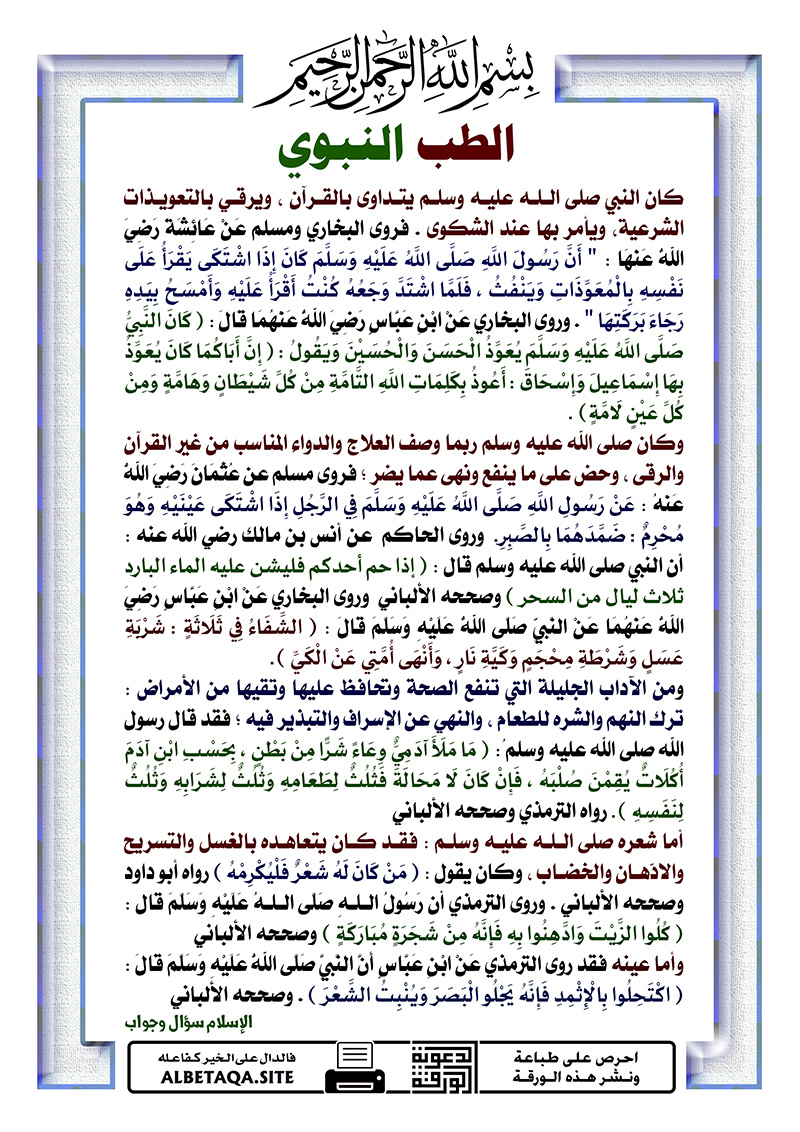 بِسْمِ اللَّهِ الرَّحْمَنِ الرَّحِيمِ
الطب النبوي
كان النبي صلى الله عليه وسلم يتداوى بالقرآن ، ويرقي بالتعويذات
الشرعية، ويأمر بها عند الشكوى . فروى البخاري ومسلم عَنْ عَائِشَة رَضِيَ
اللهُ عَنْهَا : " أَنَّ رَسُولَ اللَّهِ صَلَّى اللَّهُ عَلَيْهِ وَسَلَّمَ كَانَ إِذَا اشْتَكَى يَقْرَأُ عَلَى
نَفْسِهِ بِالْمُعَوِّذَاتِ وَيَنْفُثُ ، فَلَمَّا اشْتَدَّ وَجَعُهُ كُنْتُ أَقْرَأُ عَلَيْهِ وَأَمْسَحُ بِيَدِهِ
رَجَاءَ بَرَكَتِهَا " . وروى البخاري عَنْ ابْنِ عَبَّاسٍ رَضِيَ اللهُ عَنْهُمَا قَالَ : ( كَانَ النَّبِيُّ
صَلَّى اللَّهُ عَلَيْهِ وَسَلَّمَ يُعَوِّذُ الْحَسَنَ وَالْحُسَيْنَ وَيَقُولُ : ( إِنَّ أَبَاكُمَا كَانَ يُعَوِّذُ
بِهَا إِسْمَاعِيلَ وَإِسْحَاقَ : أَعُوذُ بِكَلِمَاتِ اللَّهِ التَّامَّةِ مِنْ كُلِّ شَيْطَانٍ وَهَامَّةٍ وَمِنْ
كُلِّ عَيْنٍ لَامَّةٍ) .
وكان صلى الله عليه وسلم ربما وصف العلاج والدواء المناسب من غير القرآن
والرقى ، وحض على ما ينفع ونهى عما يضر ؛ فروى مسلم عن عُثمَانَ رَضِيَ اللهُ
عَنهُ : عَنْ رَسُولِ اللَّهِ صَلَّى اللَّهُ عَلَيْهِ وَسَلَّمَ فِي الرَّجُلِ إِذَا اشْتَكَى عَيْنَيْهِ وَهُوَ
مُحْرِمٌ : ضَمَّدَهُمَا بِالصَّبِرِ. وروى الحاكم عن أنس بن مالك رضي الله عنه :
أن النبي صلى الله عليه وسلم قال : ( إذا حم أحدكم فليشن عليه الماء البارد
ثلاث ليال من السحر ) وصححه الألباني وروى البخاري عَنْ ابْنِ عَبَّاسٍ رَضِيَ
اللهُ عَنْهُمَا عَنْ النَّبِيِّ صَلَّى اللهُ عَلَيْهِ وَسَلَّمَ قَالَ : ( الشِّفَاءُ فِي ثَلَاثَةٍ : شَرْبَةِ
عَسَلٍ وَشَرْطَةِ مِحْجَمٍ وَكَيَّةِ نَارٍ ، وَأَنْهَى أُمَّتِي عَنْ الْكَيِّ ).
ومن الآداب الجليلة التي تنفع الصحة وتحافظ عليها وتقيها من الأمراض :
ترك النهم والشره للطعام ، والنهي عن الإسراف والتبذير فيه ؛ فقد قال رسول
الله صلى الله عليه وسلم : ( مَا مَلَأَ آدَمِيٌّ وِعَاءً شَرًّا مِنْ بَطْنٍ ، بِحَسْبِ ابْنِ آدَمَ
أُكُلَاتٌ يُقِمْنَ صُلْبَهُ ، فَإِنْ كَانَ لَا مَحَالَةَ فَثُلُثٌ لِطَعَامِهِ وَثُلُثٌ لِشَرَابِهِ وَثُلُثٌ
لِنَفَسِهِ ). رواه الترمذي وصححه الألباني
أما شعره صلى الله عليه وسلم : فقد كان يتعاهده بالغسل والتسريح
والادهان والخضاب ، وكان يقول : ( مَنْ كَانَ لَهُ شَعْرٌ فَلْيُكْرِمْهُ ) رواه أبو داود
وصححه الألباني . وروى الترمذي أن رَسُولُ اللهِ صَلَّى اللهُ عَلَيْهِ وَسَلَّمَ قَالَ :
( كُلُوا الزَّيْتَ وَادَّهِنُوا بِهِ فَإِنَّهُ مِنْ شَجَرَةٍ مُبَارَكَةٍ ) وصححه الألباني
وأما عينه فقد روى الترمذي عَنْ ابْنِ عَبَّاسٍ أنَّ النَّبِيَّ صَلَّى اللهُ عَلَيْهِ وَسَلَّمَ قَالَ :
( اكْتَحِلُوا بِالْإِثْمِدِ فَإِنَّهُ يَجْلُو الْبَصَرَ وَيُنْبِتُ الشَّعْرَ ) . وصححه الألباني
الإسلام سؤال وجواب
احرص على طباعة
ونشر هذه الورقة
الورقة الدعوية
فالدال على الخير كفاعله
ALBETAQA.SITE